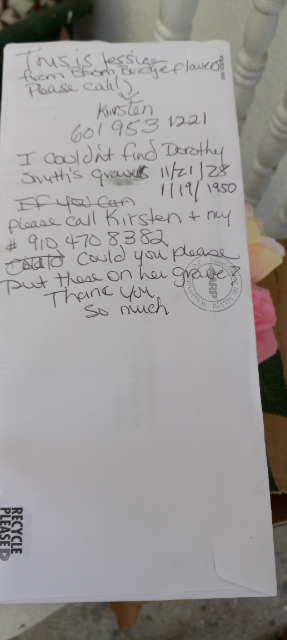 This is Jessica
from Bridge flowers
Please call
Kirsten
601 953 1221
I couldn't find Dorothy
Smith's grave 11/21/28
1/19/1950
If you can
please call Kirsten + my
# 910 470 8382
could you please
put these on her grave?
Thank you
so much
RECYCLE
PLEASE